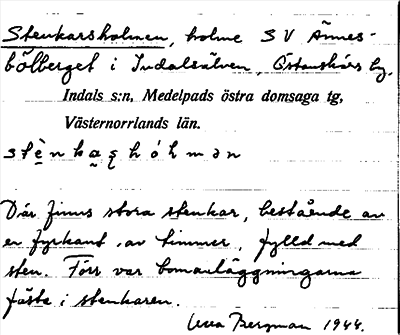 Stenkarsholmen, holme SV Ännes-
bölberget i Indalsälven, Östanskärs by,
Indals s:n, Medelpads östra domsaga tg,
Västernorrlands län.
Där finns stora stenkar, bestående av
en fyrkant av timmer, fylld med
sten. Förr var bomanläggningarna
fästa i stenkaren.
Vera Bergman 1944.